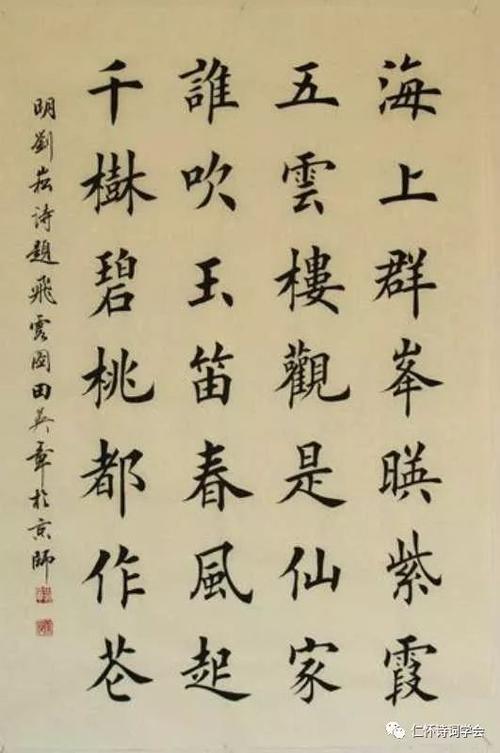 海上群峯暎紫霞
五雲樓觀是仙家
誰吹玉笛春風起
千樹碧桃都作花
明劉崧詩題飛雲圖田英章於京師
仁怀诗词学会